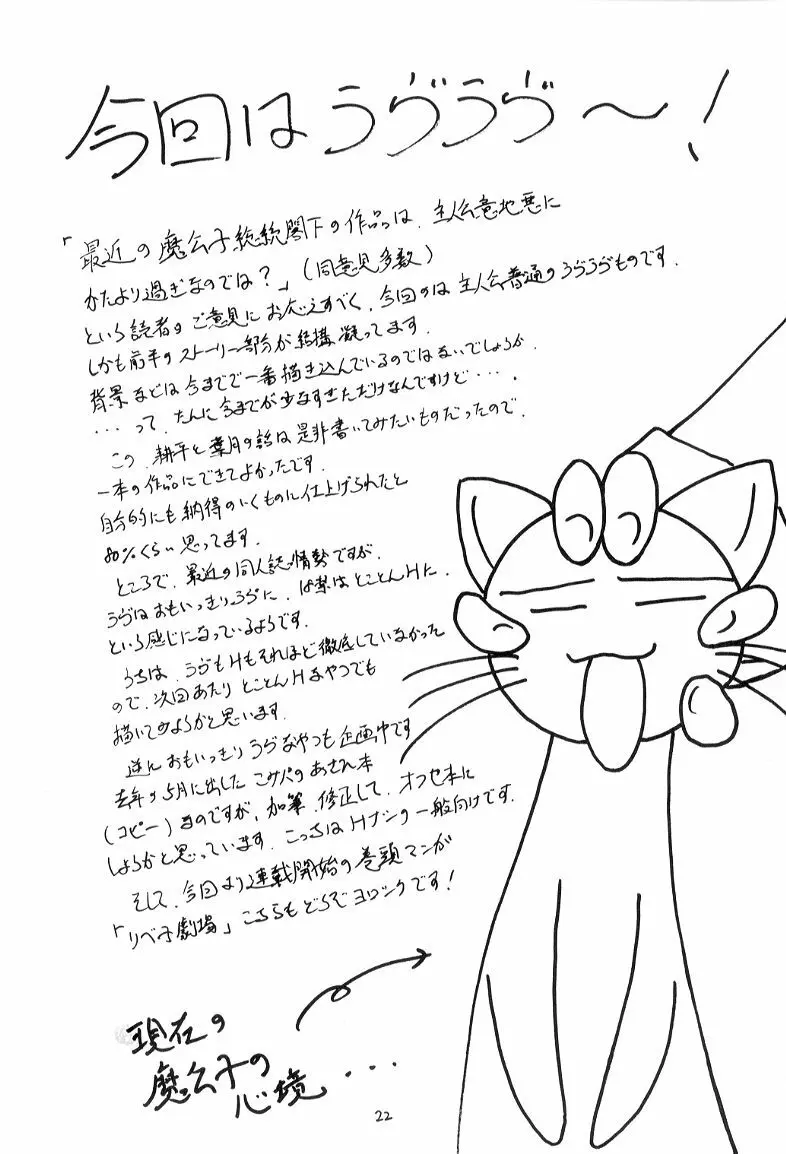 今回はうづうづ～!
「最近の魔公子総統閣下の作品は、主人公意地悪に
かたより過ぎなのでは?」(同意見多数)
という読者のご意見にお応えすべく、今回のは主人公普通のうづうづものです.
しかも前半のストーリー部分が結構凝ってます.
背景などは今までで一番描き込んでいるのではないでしょうか.
・・・って、たんに今までが少なすぎただけなんですけど・・・.
この、耕平と葉月の話は是非書いてみたいものだったので、
一本の作品にできてよかったです.
自分的にも納得のいくものに仕上げられたと
80%くらい思ってます.
ところで、最近の同人誌情勢ですが、
うづはおもいっきりうづに、Hはとことんに.
という感じになっているようです.
うちは、うづもHもそれほど徹底していなかった
ので、次回あたりとことんHなやつでも
描いてみようかと思います.
逆におもいっきりうづなやつも企画中です
去年の5月に出したこみパのあさひ本
(コピー)なのですが、加筆、修正して、オフセ本に
しようかと思っています. こっちはHナシの一般向けです.
そして、今回より連載開始の巻頭マンガ
「リベ子劇場」こちらもどうぞヨロシクです!
現在の
魔公子の
心境・・・
22